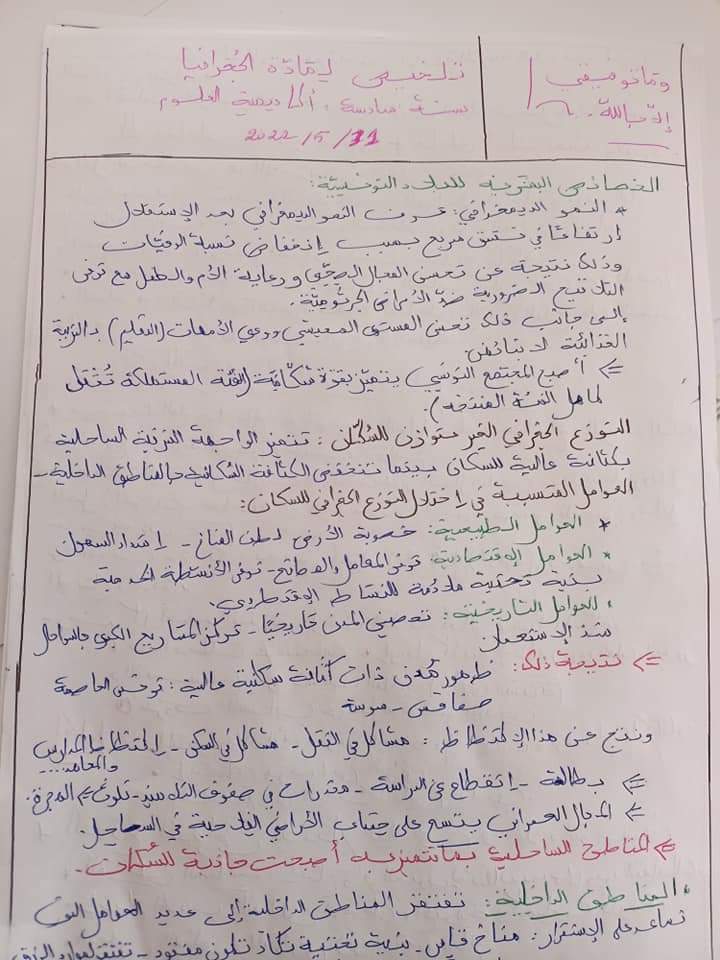 وما توفيقي
إلا بالله
تلخيص لمادة الجغرافيا
سنة سادسة : أكاديمية العلوم
2022 /5 /11
الخصائص البشرية للبلاد التونسية:
* النمو الديمغرافي: عرف النمو الديمغرافي بعد الإستقلال
ارتفاعًا في نسق سريع بسبب إنخفاض نسبة الوفيات
وذلك نتيجة عن تحسن المجال الصحي ورعاية الأم والطفل مع توفر
التلاقيح الضرورية ضد الأمراض الجرثومية.
إلى جانب ذلك تحسن المستوى المعيشي ووعي الأمهات (التعليم) بالتربية
الغذائية لأبنائهن
<= أصبح المجتمع التونسي يتميز بقوة شكابية (الفئة المستهلكة تثقل
كاهل الفئة المنتجة).
التوزع الجغرافي الغير متوازن للسكان: تتميز الواجهة الشرقية الساحلية
بكثافة عالية للسكان بينما تنخفض الكثافة السكانية بالمناطق الداخلية -
العوامل المتسببة في إختلال التوزع الجغرافي للسكان:
* العوامل الطبيعية: خصوبة الأرض لطف المناخ - إمتداد السهول
* العوامل الإقتصادية: توفر المعامل والمصانع - توفر الأنشطة الخدمية
بنية تحتية ملائمة للنشاط الإقتصادي.
* العوامل التاريخية: تحصين المدن تاريخيًا - تمركز المشاريع الكبرى بالسواحل
منذ الإستعمار
<= نتيجة ذلك: ظهور مدن ذات كثافة سكنية عالية: تونس العاصمة
صفاقس - سوسة
ونتج عن هذا الإكتظاظ: مشاكل في التنقل - مشاكل في السكن - إكتظاظ المدارس
والمعاهد....
<= بطالة - إنقطاع عن الدراسة - مخدرات في صفوف التلاميذ - تلوث <= الهجرة.
<= المجال العمراني يتسع على حساب الأراضي الفلاحية في السواحل.
<= المناطق الساحلية بما تتميز به أصبحت جاذبة للسكان.
* المناطق الداخلية: تفتقر المناطق الداخلية إلى عديد العوامل التي
تساعد على الإستقرار: مناخ قاس - بنية تحتية تكاد تكون مفقودة - تفتقر لموارد الرزق